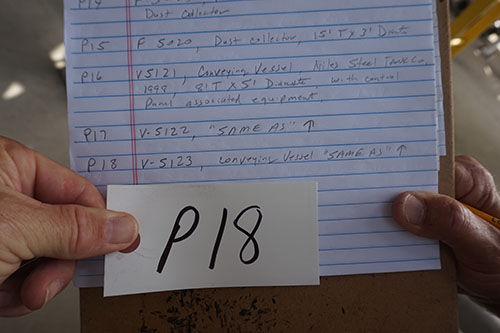 P14 F 50
Dust Collector
P15 F 5020, Dust Collector, 15' T x 3' Diameter
P16 V5121, Conveying Vessel, Niles Steel Tank Co,
1998, 8' T X 5' Diameter with control
Panel associated equipment.
P17 V-5122, "SAME AS" ↑
P18 V-5123, Conveying Vessel "SAME AS" ↑
P18